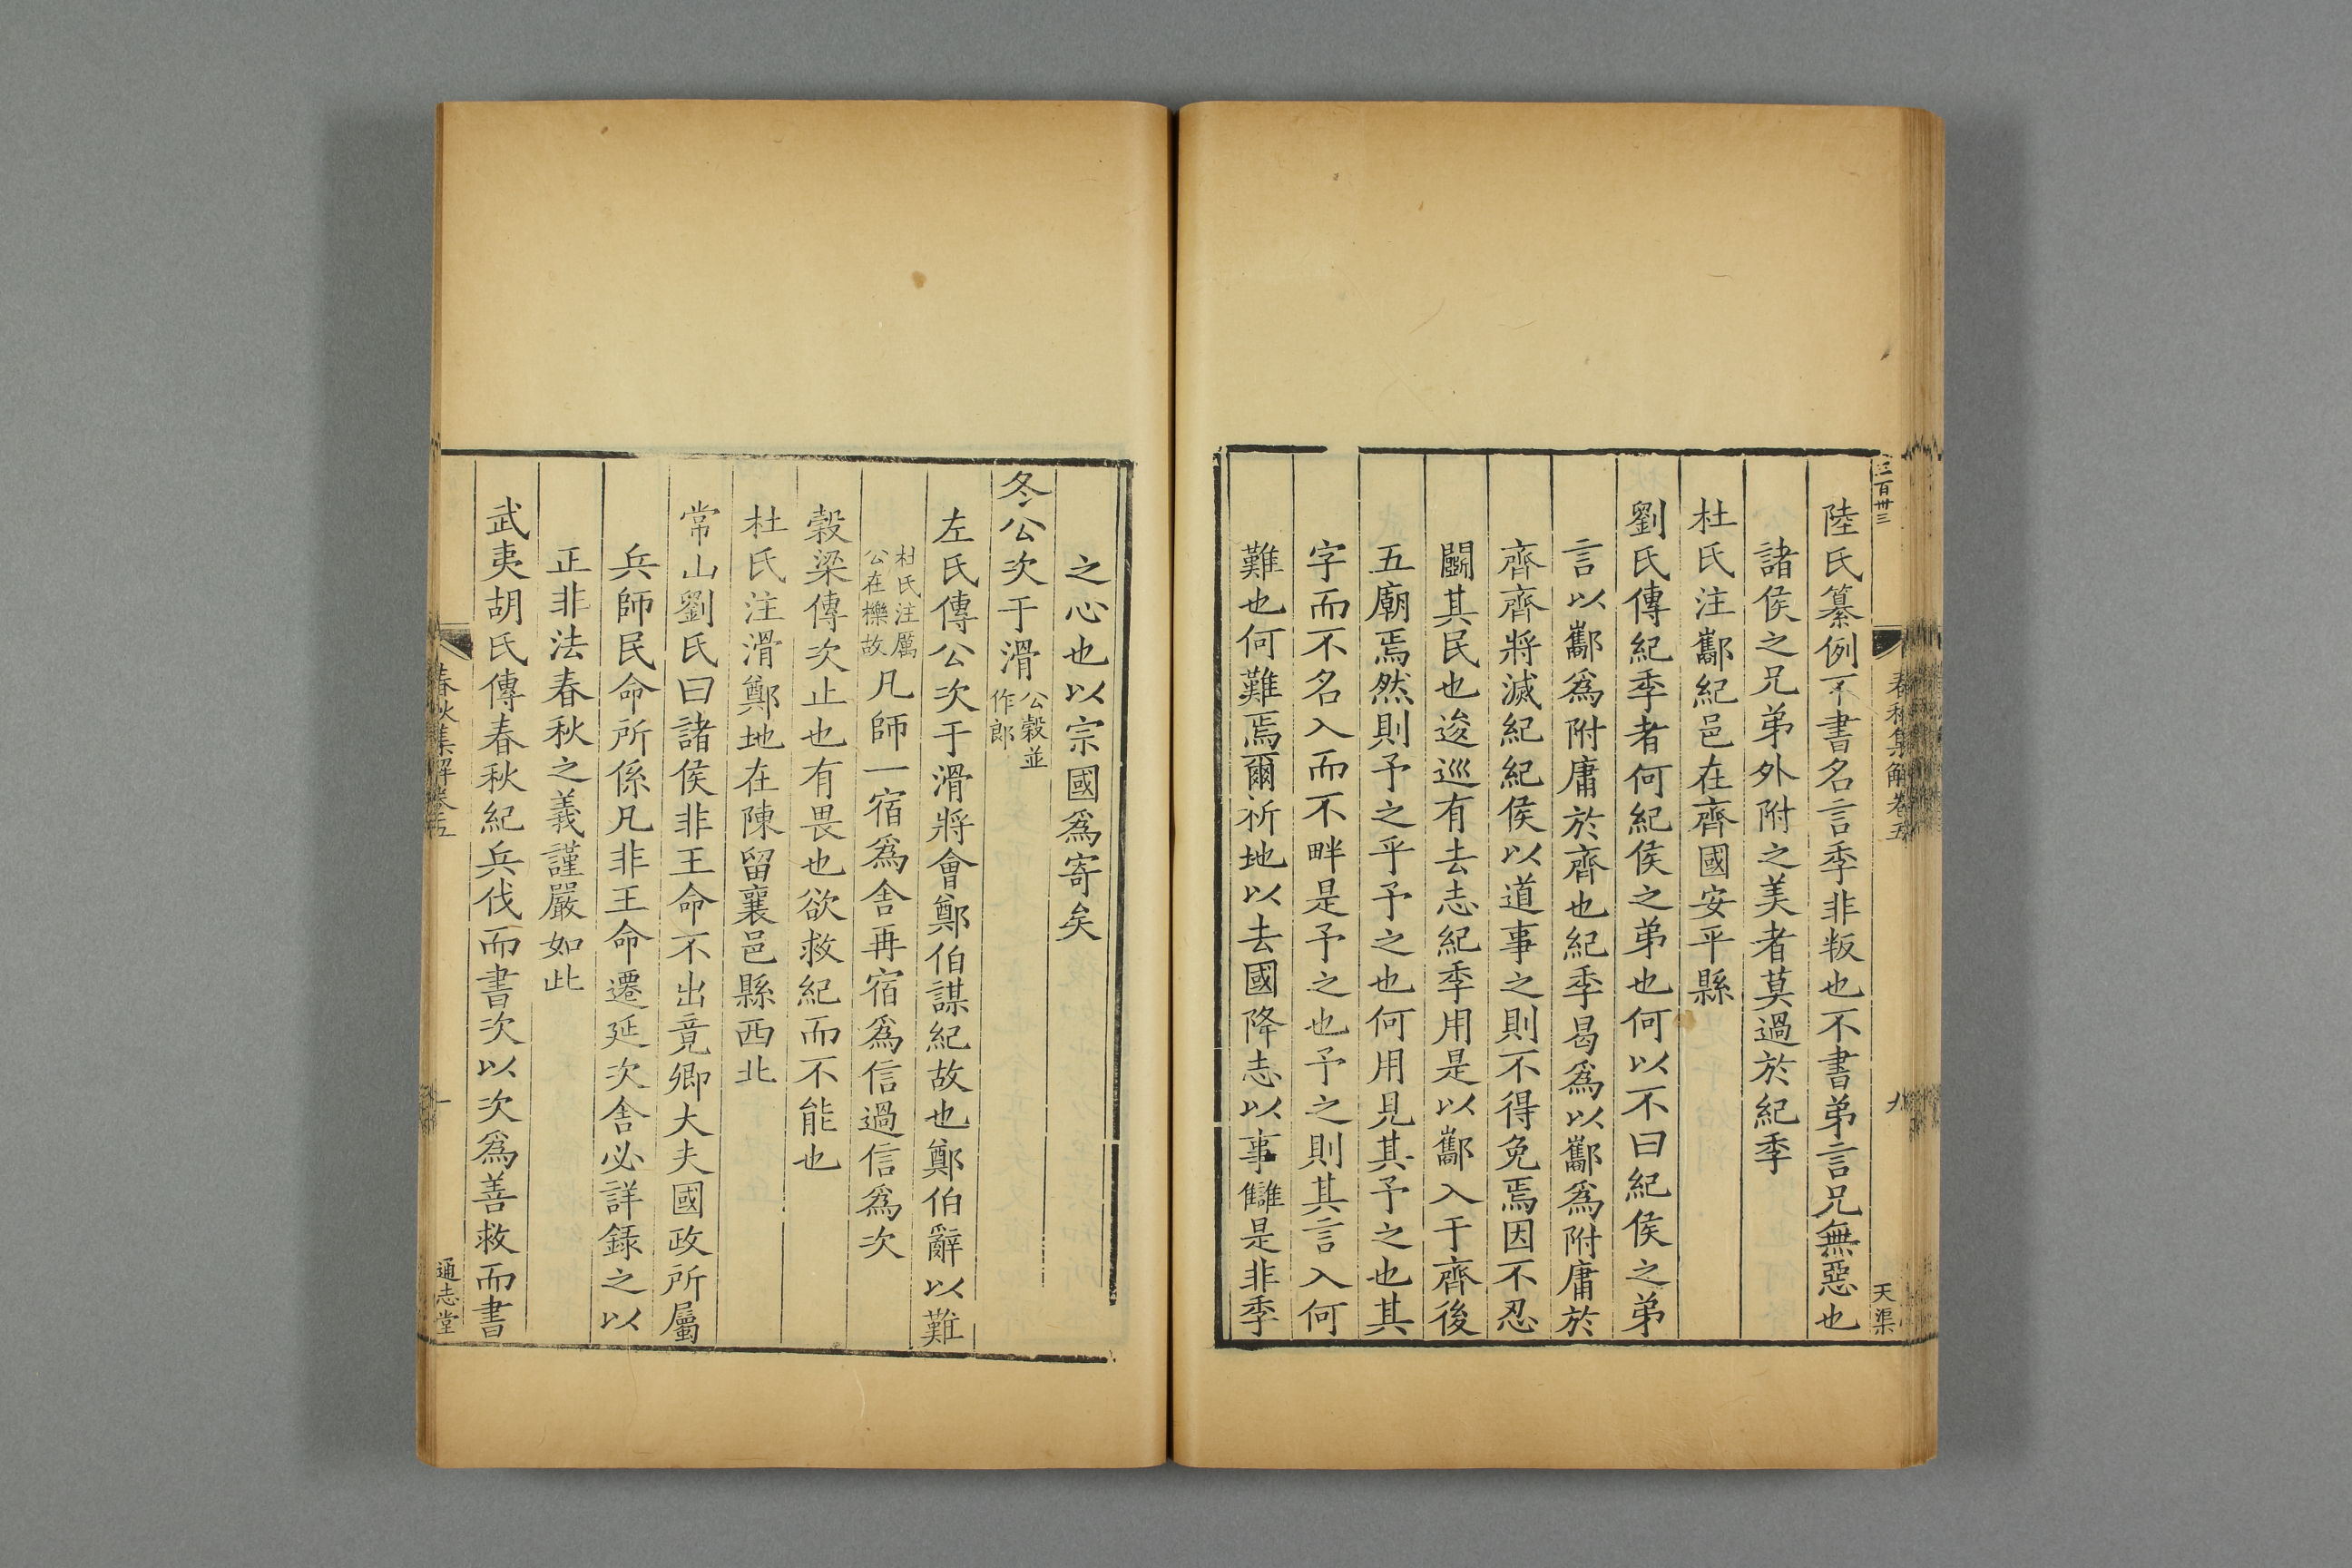 三百卅三
春秋集解卷五
九
天渠
陸氏纂例不書名言季非叛也不書弟言兄無惡也
諸侯之兄弟外附之美者莫過於紀季
杜氏注酅紀邑在齊國安平縣
劉氏傳紀季者何紀侯之弟也何以不曰紀侯之弟
言以酅爲附庸於齊也紀季曷爲以酅爲附庸於
齊齊將滅紀紀侯以道事之則不得免焉因不忍
鬬其民也逡巡有去志紀季用是以酅入于齊後
五廟焉然則予之乎予之也何用見其予之也其
字而不名入而不畔是予之也予之則其言入何
難也何難焉爾祈地以去國降志以事讎是非季
之心也以宗國爲寄矣
冬公次于滑公穀並作郎
左氏傳公次于滑將會鄭伯謀紀故也鄭伯辭以難
杜氏注厲公在櫟故凡師一宿爲舍再宿爲信過信爲次
穀梁傳次止也有畏也欲救紀而不能也
杜氏注滑鄭地在陳留襄邑縣西北
常山劉氏曰諸侯非王命不出竟卿大夫國政所屬
兵師民命所係凡非王命遷延次舍必詳録之以
正非法春秋之義謹嚴如此
武夷胡氏傳春秋紀兵伐而書次以次爲善救而書
春秋集解卷五
通志堂